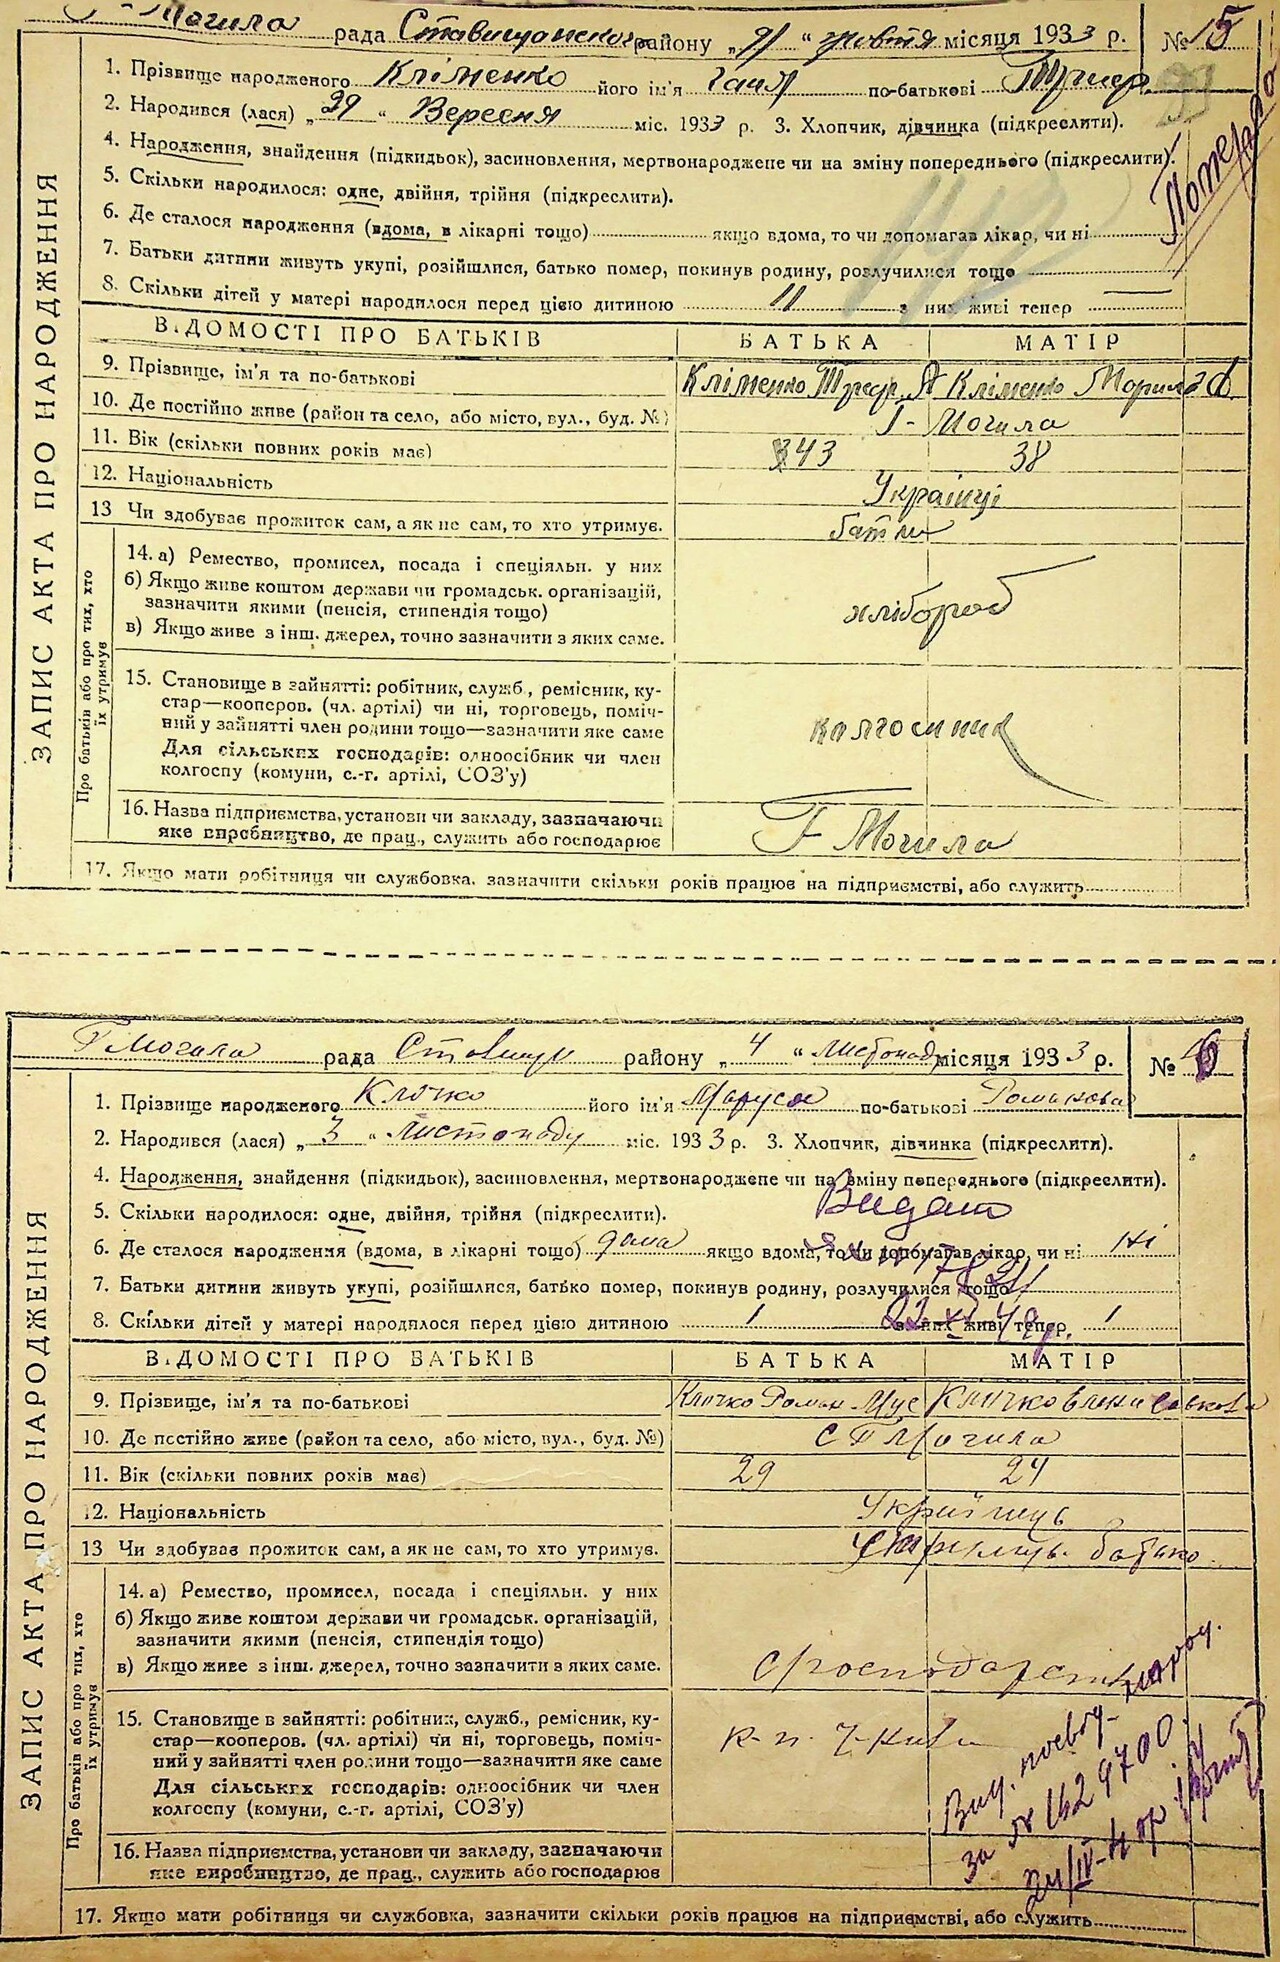 Г-Могила рада Ставищанського району „ 21 “ жовтня місяця 1933 р. № 15
1. Прізвище народженого Кліменко його ім'я Ганя по-батькові
2. Народився (лася) „ 29 “ Вересня міс. 1933 р. 3. Хлопчик, дівчинка (підкреслити).
4. Народження, знайдення (підкидьок), засиновлення, мертвонароджене чи на зміну попереднього (підкреслити).
5. Скільки народилося: одне, двійня, трійня (підкреслити).
6. Де сталося народження (вдома, в лікарні тощо) якщо вдома, то чи допомагав лікар, чи ні
7. Батьки дитини живуть укупі, розійшлися, батько помер, покинув родину, розлучилися тощо
8. Скільки дітей у матері народилося перед цією дитиною 11 з них живі тепер —
Померла
ЗАПИС АКТА ПРО НАРОДЖЕННЯ
ВІДОМОСТІ ПРО БАТЬКІВ БАТЬКА МАТІР
9. Прізвище, ім'я та по-батькові Кліменко Кліменко
10. Де постійно живе (район та село, або місто, вул., буд. №) Г-Могила
11. Вік (скільки повних років має) 43 38
12. Національність Українці
13 Чи здобуває прожиток сам, а як не сам, то хто утримує.
Про батьків або про тих, хто їх утримує
14. а) Ремество, промисел, посада і спеціяльн. у них
б) Якщо живе коштом держави чи громадськ. організацій,
зазначити якими (пенсія, стипендія тощо) хлібороб
в) Якщо живе з інш. джерел, точно зазначити з яких саме.
15. Становище в зайнятті: робітник, служб., ремісник, ку-
стар—кооперов. (чл. артілі) чи ні, торговець, поміч-
ний у зайнятті член родини тощо—зазначити яке саме колгоспник
Для сільських господарів: одноосібник чи член
колгоспу (комуни, с.-г. артілі, СОЗ'у)
16. Назва підприємства, установи чи закладу, зазначаючи
яке виробництво, де прац., служить або господарює Г-Могила
17. Якщо мати робітниця чи службовка, зазначити скільки років працює на підприємстві, або служить
Г Могила рада Ставищи району „ 4 “ листопад місяця 1933 р. № 16
1. Прізвище народженого Клочко його ім'я Маруся по-батькові Романова
2. Народився (лася) „ 3 “ Листопаду міс. 1933 р. 3. Хлопчик, дівчинка (підкреслити).
4. Народження, знайдення (підкидьок), засиновлення, мертвонароджене чи на зміну попереднього (підкреслити).
5. Скільки народилося: одне, двійня, трійня (підкреслити). Видано
6. Де сталося народження (вдома, в лікарні тощо) дома якщо вдома, то чи допомагав лікар, чи ні Ні
7. Батьки дитини живуть укупі, розійшлися, батько помер, покинув родину, розлучилися тощо
8. Скільки дітей у матері народилося перед цією дитиною 1 з них живі тепер 1
ЗАПИС АКТА ПРО НАРОДЖЕННЯ
ВІДОМОСТІ ПРО БАТЬКІВ БАТЬКА МАТІР
9. Прізвище, ім'я та по-батькові Клочко Роман Клочко
10. Де постійно живе (район та село, або місто, вул., буд. №) с Г Могила
11. Вік (скільки повних років має) 29 24
12. Національність Українець
13 Чи здобуває прожиток сам, а як не сам, то хто утримує. батько
Про батьків або про тих, хто їх утримує
14. а) Ремество, промисел, посада і спеціяльн. у них
б) Якщо живе коштом держави чи громадськ. організацій,
зазначити якими (пенсія, стипендія тощо)
в) Якщо живе з інш. джерел, точно зазначити з яких саме.
15. Становище в зайнятті: робітник, служб., ремісник, ку-
стар—кооперов. (чл. артілі) чи ні, торговець, поміч-
ний у зайнятті член родини тощо—зазначити яке саме
Для сільських господарів: одноосібник чи член
колгоспу (комуни, с.-г. артілі, СОЗ'у)
16. Назва підприємства, установи чи закладу, зазначаючи
яке виробництво, де прац., служить або господарює
17. Якщо мати робітниця чи службовка, зазначити скільки років працює на підприємстві, або служить